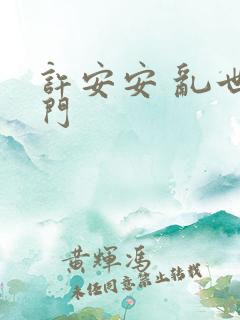 許安安 亂世
門
黃輝馮
未經同意禁止轉載